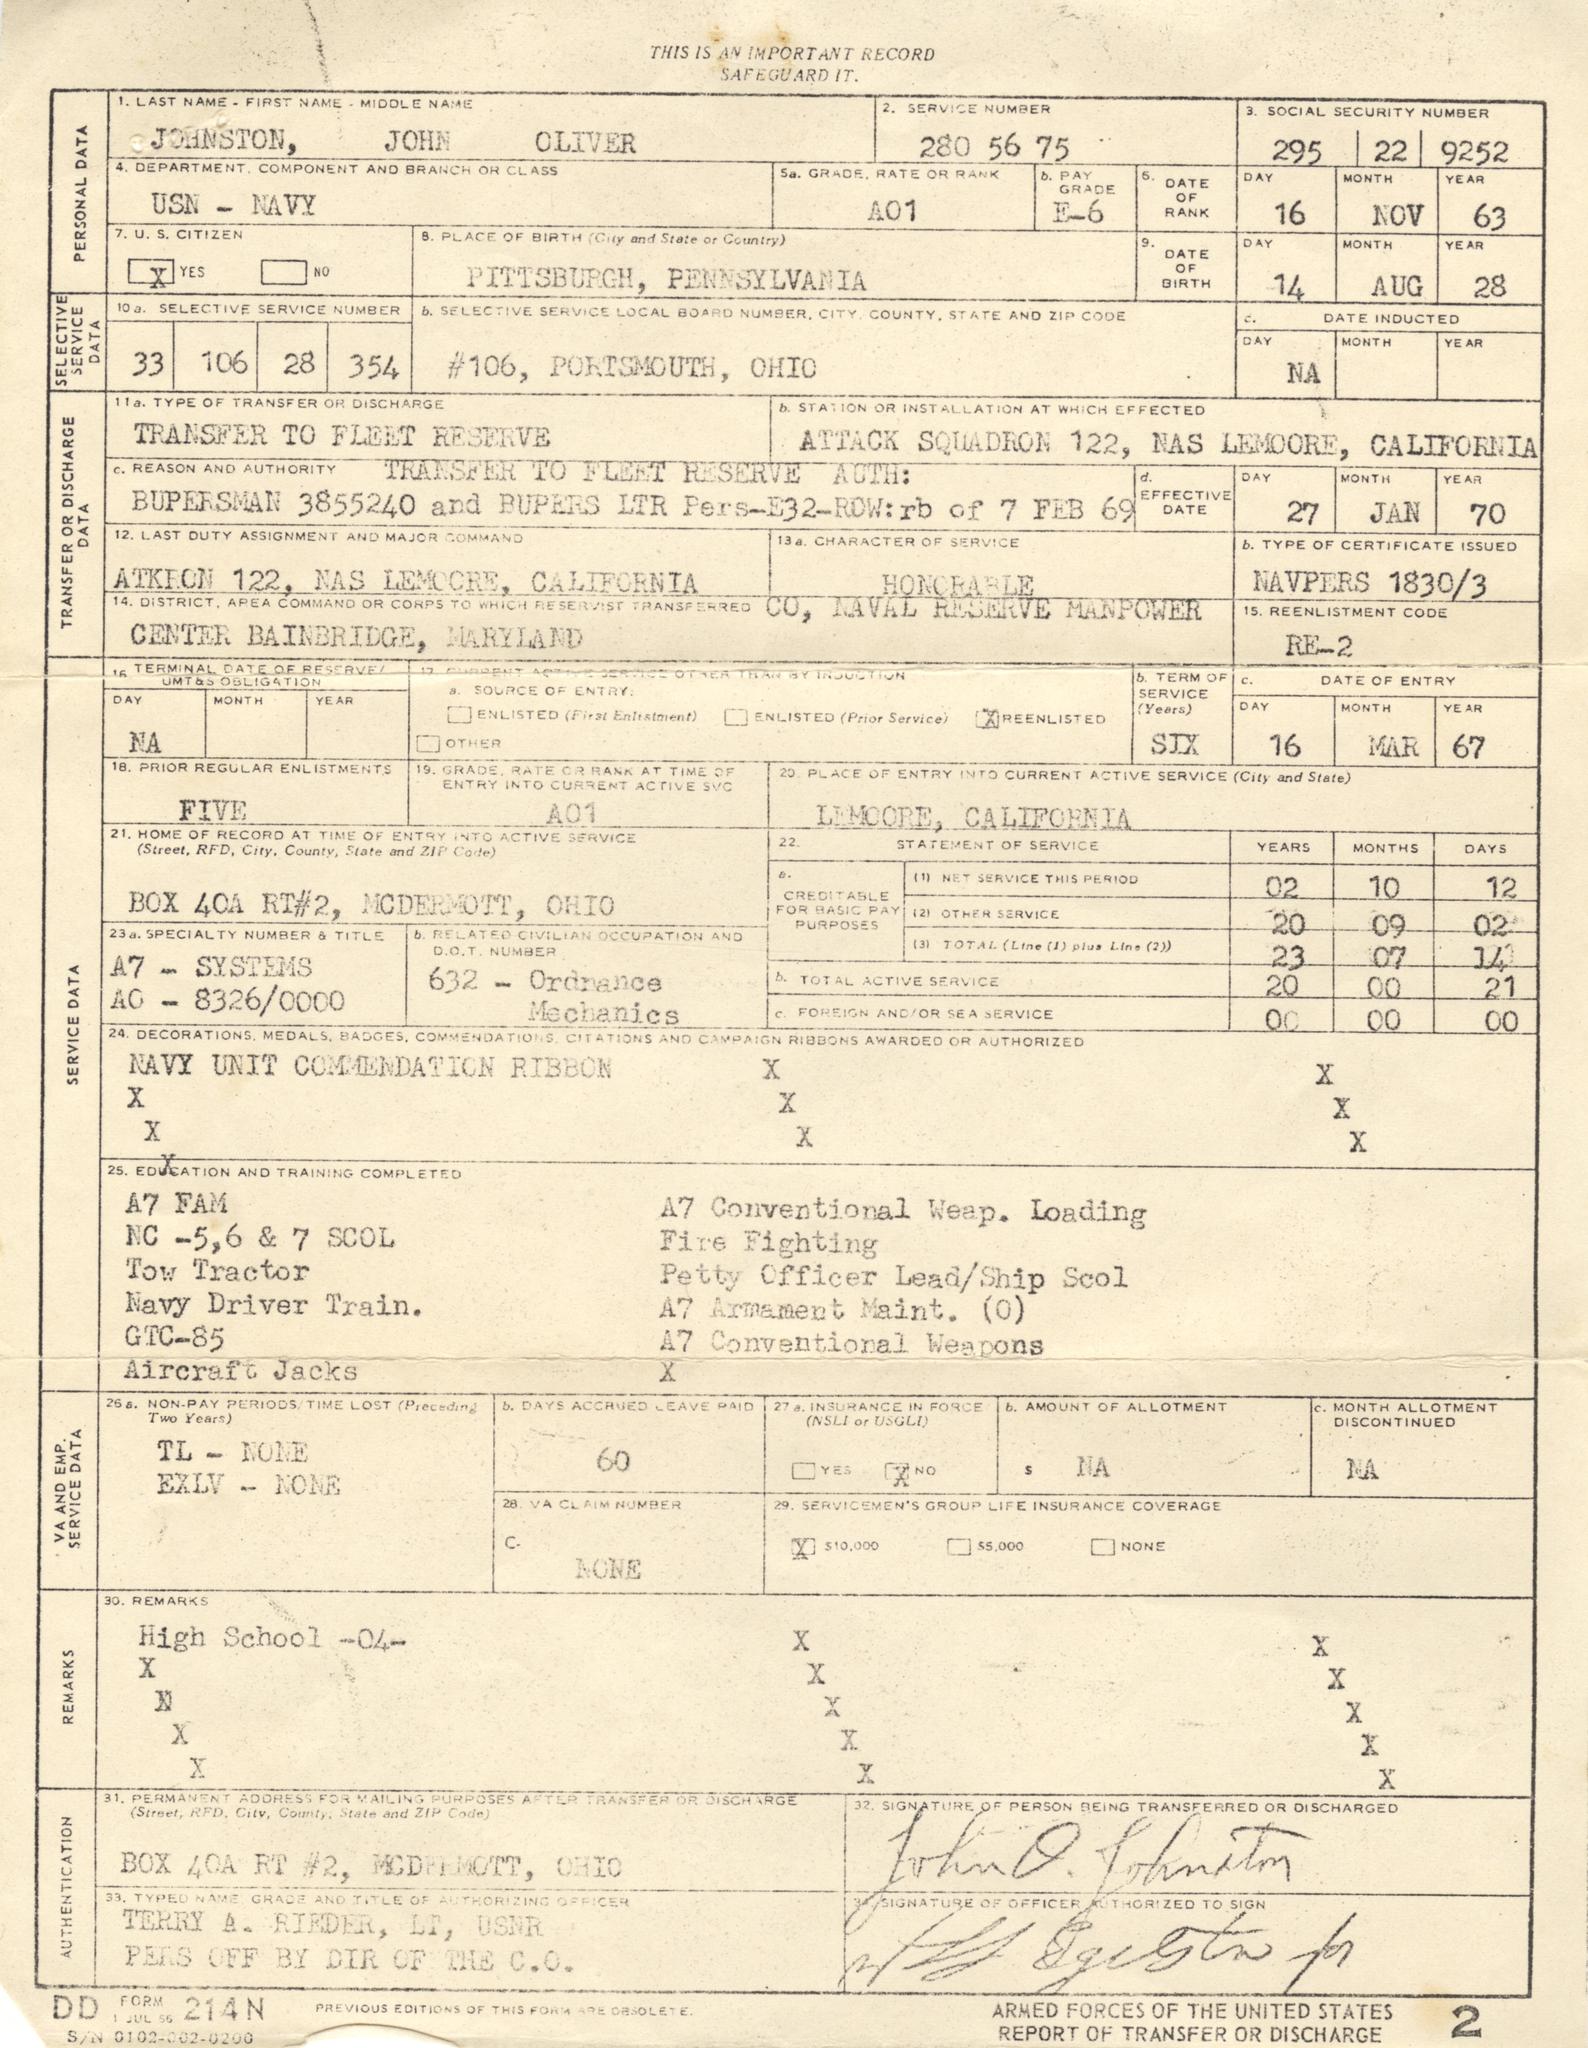 THIS IS AN IMPORTANT RECORD
SAFEGUARD IT.
PERSONAL DATA
1. LAST NAME - FIRST NAME - MIDDLE NAME
JOHNSTON, JOHN OLIVER
2. SERVICE NUMBER
280 56 75
3. SOCIAL SECURITY NUMBER
295 22 9252
4. DEPARTMENT, COMPONENT AND BRANCH OR CLASS
USN - NAVY
5a. GRADE, RATE OR RANK
AO1
b. PAY GRADE
E-6
6. DATE OF RANK
DAY MONTH YEAR
16 NOV 63
7. U. S. CITIZEN
X YES NO
8. PLACE OF BIRTH (City and State or Country)
PITTSBURGH, PENNSYLVANIA
9. DATE OF BIRTH
DAY MONTH YEAR
14 AUG 28
SELECTIVE SERVICE DATA
10a. SELECTIVE SERVICE NUMBER
33 106 28 354
b. SELECTIVE SERVICE LOCAL BOARD NUMBER, CITY, COUNTY, STATE AND ZIP CODE
#106, PORTSMOUTH, OHIO
c. DATE INDUCTED
DAY MONTH YEAR
NA
TRANSFER OR DISCHARGE DATA
11a. TYPE OF TRANSFER OR DISCHARGE
TRANSFER TO FLEET RESERVE
b. STATION OR INSTALLATION AT WHICH EFFECTED
ATTACK SQUADRON 122, NAS LEMOORE, CALIFORNIA
c. REASON AND AUTHORITY TRANSFER TO FLEET RESERVE AUTH:
BUPERSMAN 3855240 and BUPERS LTR Pers-E32-RDW:rb of 7 FEB 69
d. EFFECTIVE DATE
DAY MONTH YEAR
27 JAN 70
12. LAST DUTY ASSIGNMENT AND MAJOR COMMAND
ATKRON 122, NAS LEMOORE, CALIFORNIA
13a. CHARACTER OF SERVICE
HONORABLE
b. TYPE OF CERTIFICATE ISSUED
NAVPERS 1830/3
14. DISTRICT, AREA COMMAND OR CORPS TO WHICH RESERVIST TRANSFERRED CO, NAVAL RESERVE MANPOWER
CENTER BAINBRIDGE, MARYLAND
15. REENLISTMENT CODE
RE-2
SERVICE DATA
16. TERMINAL DATE OF RESERVE/
UMT&S OBLIGATION
DAY MONTH YEAR
NA
17. CURRENT ACTIVE SERVICE OTHER THAN BY INDUCTION
a. SOURCE OF ENTRY:
ENLISTED (First Enlistment) ENLISTED (Prior Service) X REENLISTED
OTHER
b. TERM OF SERVICE (Years)
SIX
c. DATE OF ENTRY
DAY MONTH YEAR
16 MAR 67
18. PRIOR REGULAR ENLISTMENTS
FIVE
19. GRADE, RATE OR RANK AT TIME OF
ENTRY INTO CURRENT ACTIVE SVC
AO1
20. PLACE OF ENTRY INTO CURRENT ACTIVE SERVICE (City and State)
LEMOORE, CALIFORNIA
21. HOME OF RECORD AT TIME OF ENTRY INTO ACTIVE SERVICE
(Street, RFD, City, County, State and ZIP Code)
BOX 40A RT#2, MCDERMOTT, OHIO
22. STATEMENT OF SERVICE YEARS MONTHS DAYS
a. CREDITABLE FOR BASIC PAY PURPOSES
(1) NET SERVICE THIS PERIOD 02 10 12
(2) OTHER SERVICE 20 09 02
(3) TOTAL (Line (1) plus Line (2)) 23 07 14
b. TOTAL ACTIVE SERVICE 20 00 21
c. FOREIGN AND/OR SEA SERVICE 00 00 00
23a. SPECIALTY NUMBER & TITLE
A7 - SYSTEMS
AO - 8326/0000
b. RELATED CIVILIAN OCCUPATION AND
D.O.T. NUMBER
632 - Ordnance
Mechanics
24. DECORATIONS, MEDALS, BADGES, COMMENDATIONS, CITATIONS AND CAMPAIGN RIBBONS AWARDED OR AUTHORIZED
NAVY UNIT COMMENDATION RIBBON X X
X X X
X X X
X
25. EDUCATION AND TRAINING COMPLETED
A7 FAM A7 Conventional Weap. Loading
NC -5,6 & 7 SCOL Fire Fighting
Tow Tractor Petty Officer Lead/Ship Scol
Navy Driver Train. A7 Armament Maint. (O)
GTC-85 A7 Conventional Weapons
Aircraft Jacks X
VA AND EMP. SERVICE DATA
26a. NON-PAY PERIODS/TIME LOST (Preceding
Two Years)
TL - NONE
EXLV - NONE
b. DAYS ACCRUED LEAVE PAID
60
27a. INSURANCE IN FORCE
(NSLI or USGLI)
YES X NO
b. AMOUNT OF ALLOTMENT
$ NA
c. MONTH ALLOTMENT
DISCONTINUED
NA
28. VA CLAIM NUMBER
C-
NONE
29. SERVICEMEN'S GROUP LIFE INSURANCE COVERAGE
X $10,000 $5,000 NONE
REMARKS
30. REMARKS
High School -04- X X
X X X
X X X
X X X
X X X
AUTHENTICATION
31. PERMANENT ADDRESS FOR MAILING PURPOSES AFTER TRANSFER OR DISCHARGE
(Street, RFD, City, County, State and ZIP Code)
BOX 40A RT #2, MCDERMOTT, OHIO
32. SIGNATURE OF PERSON BEING TRANSFERRED OR DISCHARGED
John O. Johnston
33. TYPED NAME, GRADE AND TITLE OF AUTHORIZING OFFICER
TERRY A. RIEDER, LT, USNR
PERS OFF BY DIR OF THE C.O.
34. SIGNATURE OF OFFICER AUTHORIZED TO SIGN
DD FORM 1 JUL 66 214N PREVIOUS EDITIONS OF THIS FORM ARE OBSOLETE.
S/N 0102-002-0200
ARMED FORCES OF THE UNITED STATES
REPORT OF TRANSFER OR DISCHARGE 2